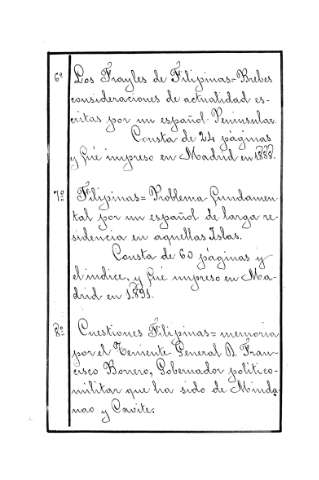 6ª Los Frayles de Filipinas=Brebes
consideraciones de actualidad es-
critas por un español-Peninsular
Consta de 24 páginas
y fué impreso en Madrid en 1888.
7ª Filipinas=Problema fundamen-
tal por un español de larga re-
sidencia en aquellas islas.
Consta de 60 páginas y
el indice, y fué impreso en Ma-
drid en 1891.
8ª Cuestiones Filipinas=memoria
por el Teniente General D. Fran-
cisco Borrero, Gobernador politico-
militar que ha sido de Minda
nao y Cavite.